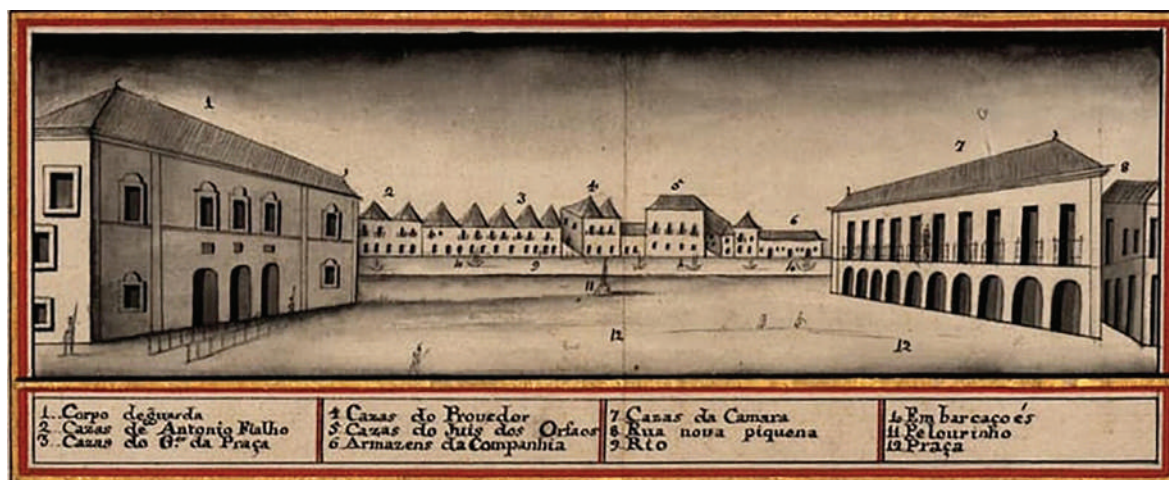 1
2
3
4
5
6
7
8
10
9
10
11
12
12
1.. Corpo de guarda
2 Cazas de Antonio Fialho
3 Cazas do G.ᵒʳ da Praça
4 Cazas do Provedor
5 Cazas do Juis dos Orfaos
6 Armazens da Companhia
7 Cazas da Camara
8 Rua nova piquena
9. Rio
10 Embarcaçoés
11 Pelourinho
12 Praça